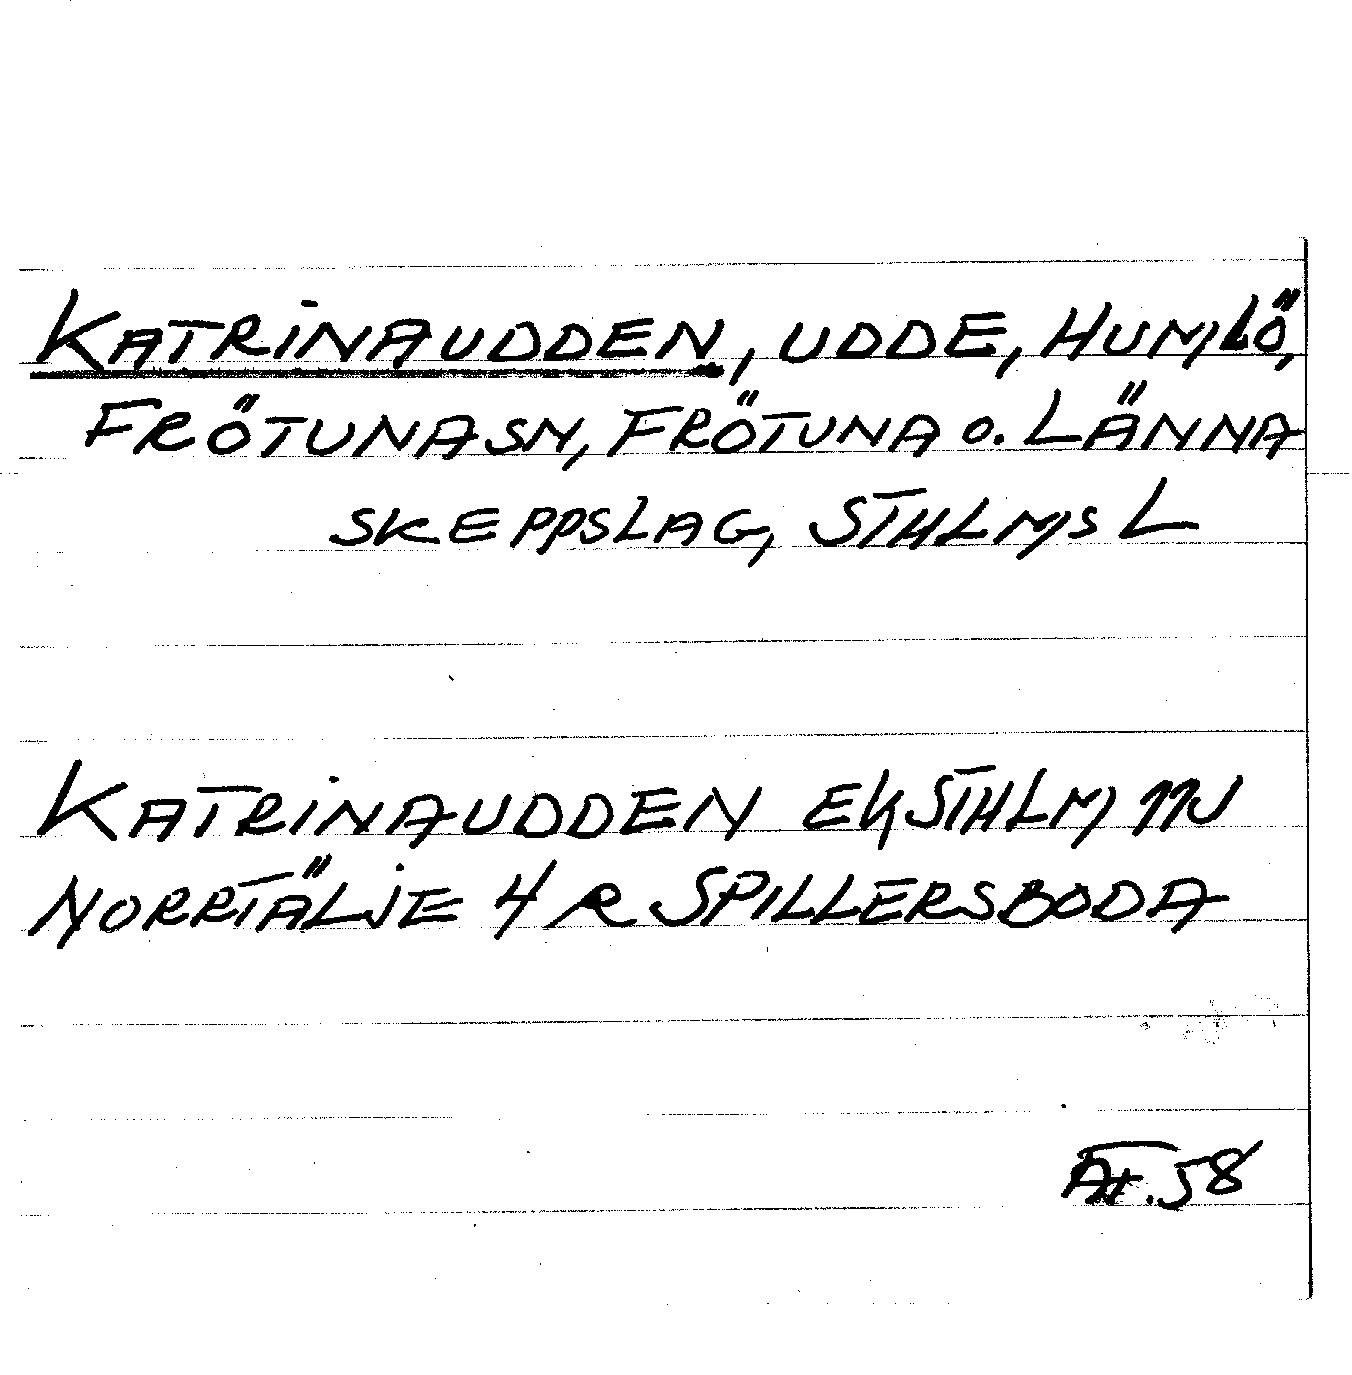 KATRINAUDDEN, UDDE, HUMLÖ,
FRÖTUNA SN, FRÖTUNA O. LÄNNA
SKEPPSLAG, STHLMS L
KATRINAUDDEN EK STHLM NV
NORRTÄLJE 4 R SPILLERSBODA
58